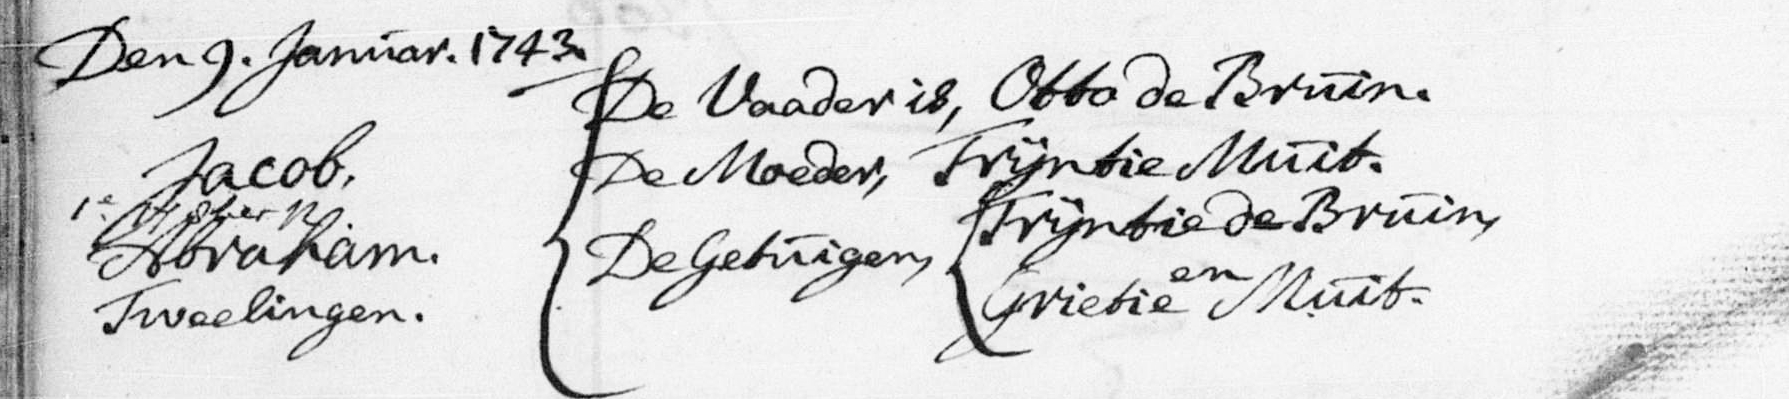 Den 9. Januar. 1743.
De Vaader is, Otto de Bruin.
Jacob.
De Moeder, Trijntie Muit.
Abraham.
De Getuigen, Trijntie de Bruin,
en
Tweelingen.
Grietie Muit.